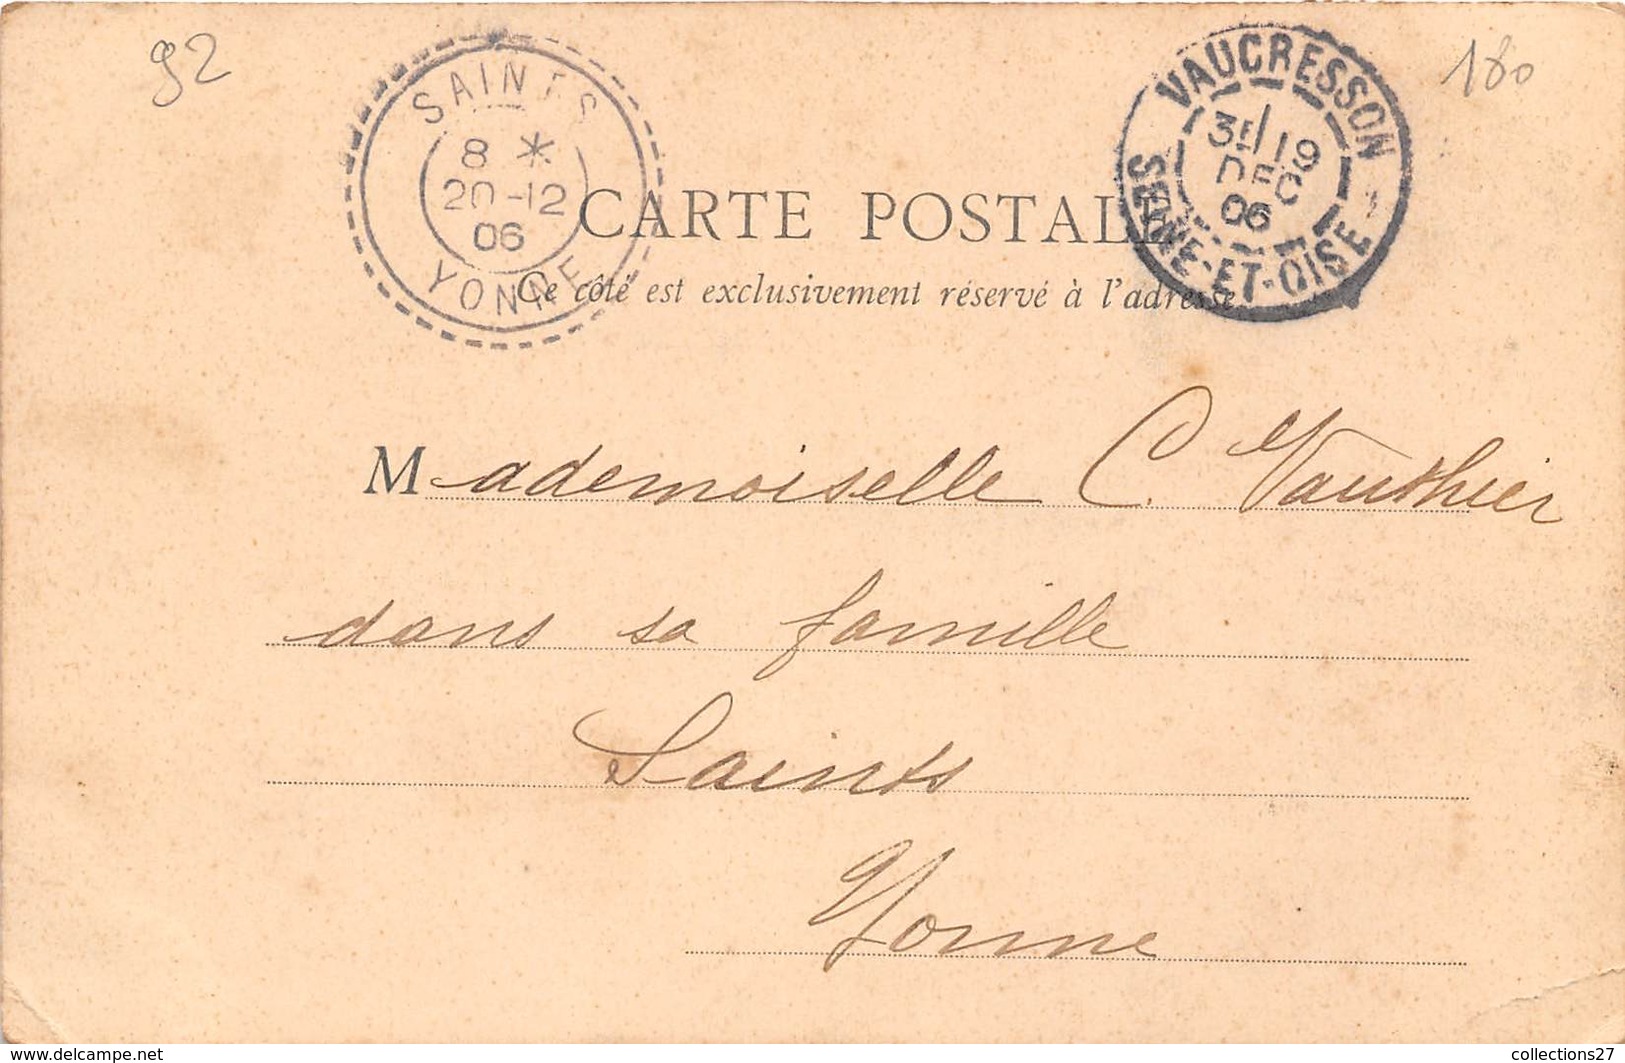 92
180
SAINTS
8 *
20-12
06
YONNE
VAUCRESSON
3E/19
DEC
06
SEINE-ET-OISE
CARTE POSTALE
Ce côté est exclusivement réservé à l'adresse
Mademoiselle C. Vauthier
dans sa famille
Saints
Yonne
www.delcampe.net
collections27